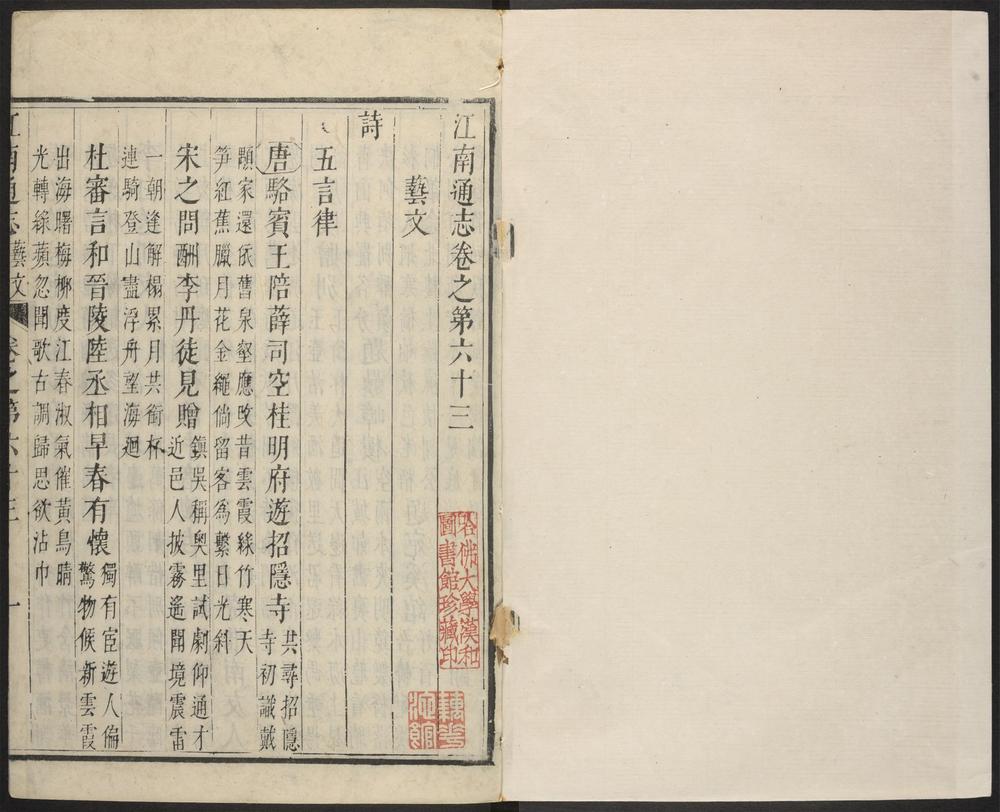 江南通志卷之第六十三
藝文
詩
五言律
唐駱賓王陪薛司空桂明府遊招隱寺 共尋招隱
寺初識戴
顒家還依舊泉壑應改昔雲霞綠竹寒天
笋紅蕉臘月花金繩倘留客爲繫日光斜
宋之問酬李丹徒見贈 鎮吳稱奧里試劇仰通才
近邑人披霧遙聞境震雷
一朝逢解榻累月共銜杯
連騎登山盡浮舟望海廻
杜審言和晉陵陸丞相早春有懷 獨有宦遊人偏
驚物候新雲霞
出海曙梅柳度江春淑氣催黃鳥晴
光轉綠蘋忽聞歌古調歸思欲沾巾
江南通志 藝文 卷之第六十三 一
哈佛大學漢和
圖書館珍藏印